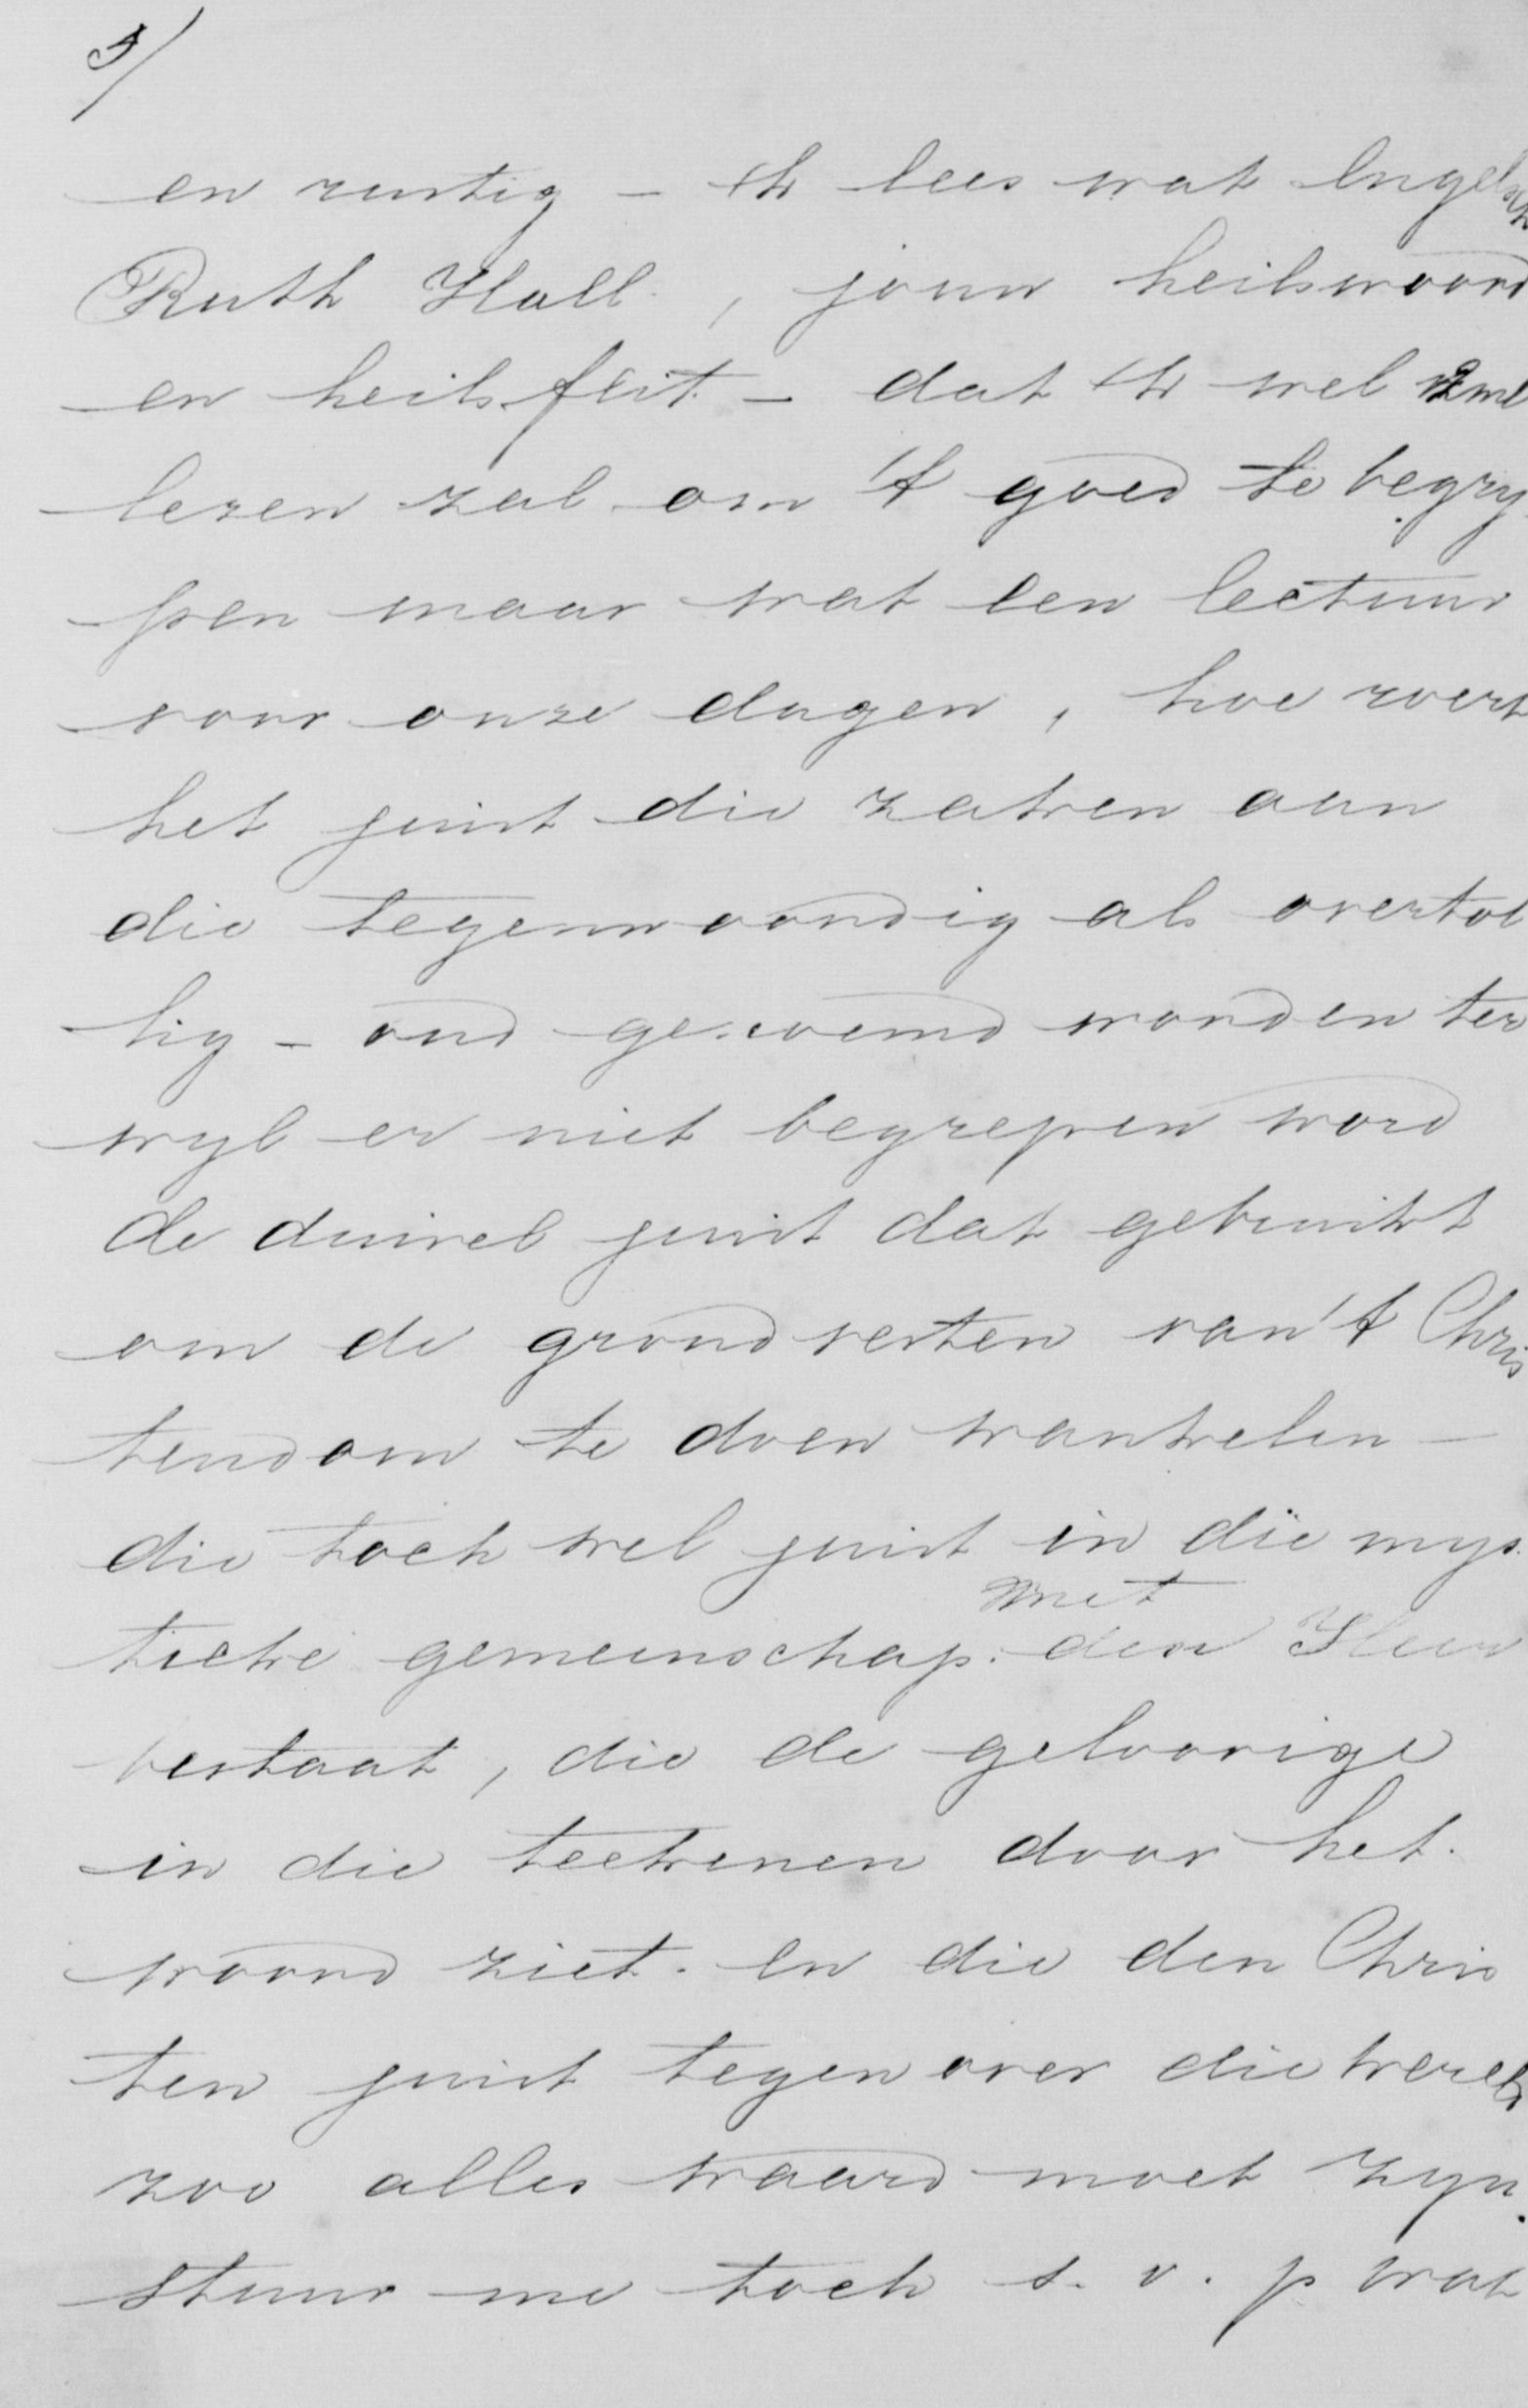 5/
en rustig – ik lees wat Engelsch
Ruth Hall, jouw heilswoord
en heilsfeit – dat ik wel 2 ml
lezen zal om 't goed te begry
pen maar wat een lectuur
voor onze dagen, hoe voert
het juist die zaken aan
die tegenwoordig als overtol
lig – oud genoemd worden ter
wyl er niet begrepen word
de duivel juist dat gebruikt
om de grondvesten van 't Chris
tendom te doen wankelen –
die toch wel juist in die mys
met
tieke gemeenschap den Heer
bestaat, die de geloovige
in die teekenen door het
woord ziet. en die den Chris
ten juist tegenover die wereld
zoo alles waard moet zyn.
stuur me toch s. v. p wat